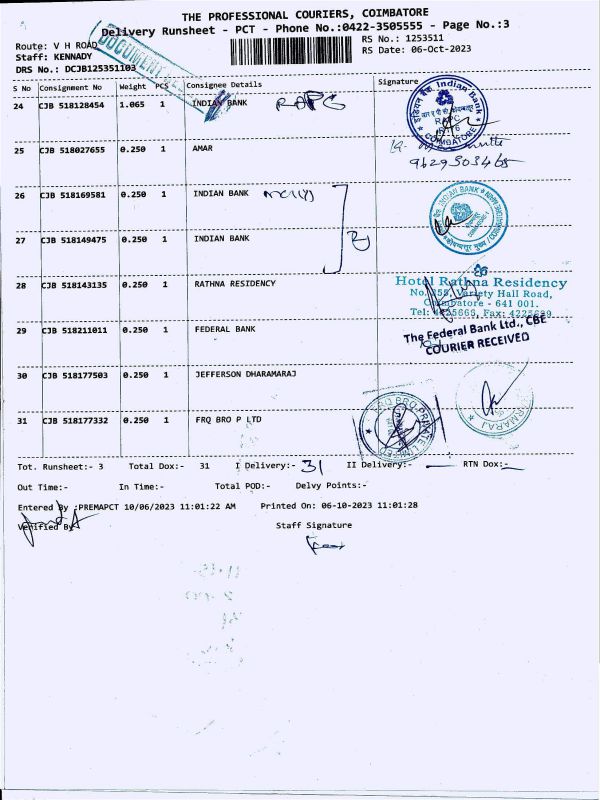 THE PROFESSIONAL COURIERS, COIMBATORE
Delivery Runsheet - PCT - Phone No.:0422-3505555 - Page No.:3
Route: V H ROAD
RS No.: 1253511
Staff: KENNADY
RS Date: 06-Oct-2023
DRS No.: DCJB125351103
DOCUMENT
S No Consignment No Weight PCS Consignee Details Signature
24 CJB 518128454 1.065 1 INDIAN BANK RAPC
Indian Bank
RAPC
COIMBATORE
25 CJB 518027655 0.250 1 AMAR
9629503468
26 CJB 518169581 0.250 1 INDIAN BANK
INDIAN BANK
27 CJB 518149475 0.250 1 INDIAN BANK
28 CJB 518143135 0.250 1 RATHNA RESIDENCY
Hotel Rathna Residency
No. 355, Variety Hall Road,
Coimbatore - 641 001.
29 CJB 518211011 0.250 1 FEDERAL BANK
The Federal Bank Ltd., CBE
COURIER RECEIVED
30 CJB 518177503 0.250 1 JEFFERSON DHARAMARAJ
31 CJB 518177332 0.250 1 FRQ BRO P LTD
FRQ BRO PRIVATE LIMITED
Tot. Runsheet:- 3 Total Dox:- 31 I Delivery:- 31 II Delivery:- — RTN Dox:-
Out Time:- In Time:- Total POD:- Delvy Points:-
Entered By :PREMAPCT 10/06/2023 11:01:22 AM Printed On: 06-10-2023 11:01:28
Verified By
Staff Signature